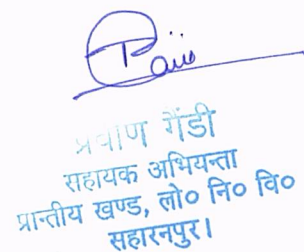 गैंडी
सहायक अभियन्ता
प्रान्तीय खण्ड, लो० नि० वि०
सहारनपुर।